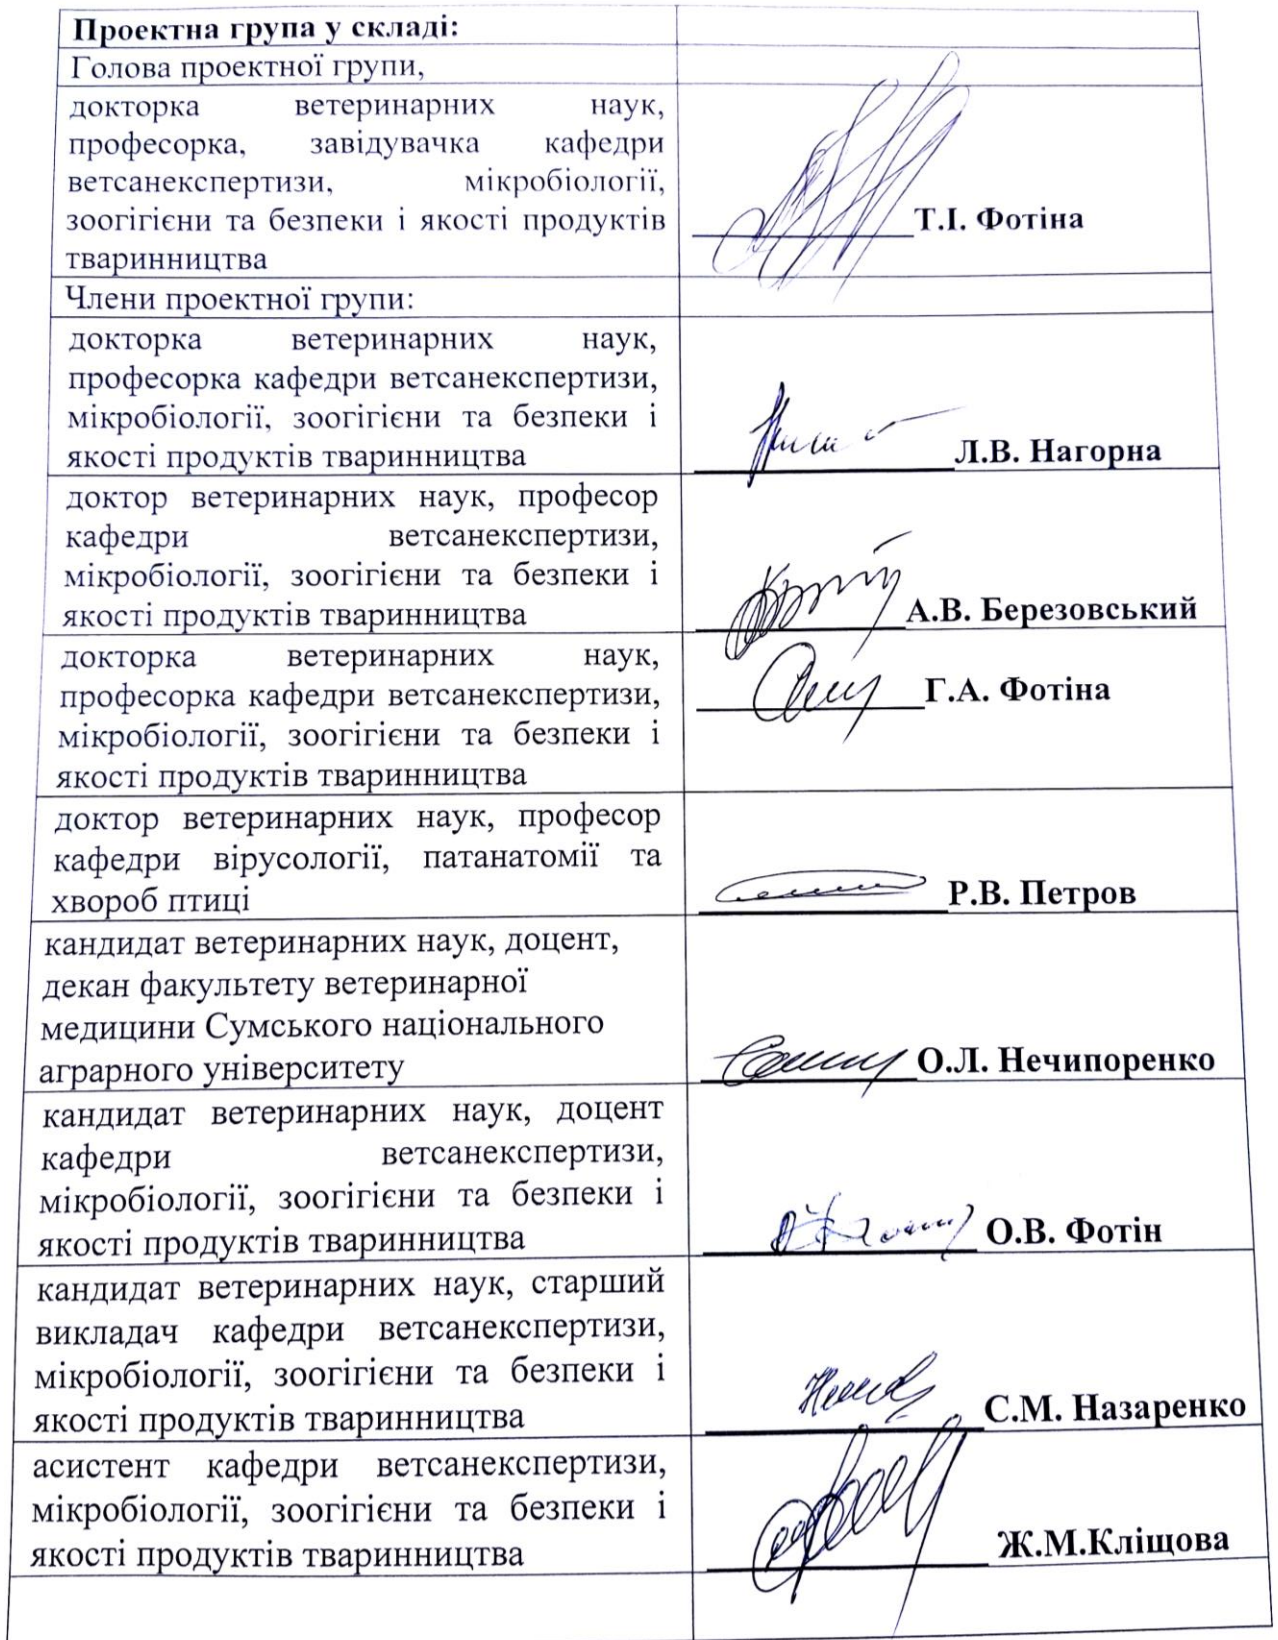 Проектна група у складі:
Голова проектної групи,
докторка ветеринарних наук,
професорка, завідувачка кафедри
ветсанекспертизи, мікробіології,
зоогігієни та безпеки і якості продуктів
тваринництва
Т.І. Фотіна
Члени проектної групи:
докторка ветеринарних наук,
професорка кафедри ветсанекспертизи,
мікробіології, зоогігієни та безпеки і
якості продуктів тваринництва
Л.В. Нагорна
доктор ветеринарних наук, професор
кафедри ветсанекспертизи,
мікробіології, зоогігієни та безпеки і
якості продуктів тваринництва
А.В. Березовський
докторка ветеринарних наук,
професорка кафедри ветсанекспертизи,
мікробіології, зоогігієни та безпеки і
якості продуктів тваринництва
Г.А. Фотіна
доктор ветеринарних наук, професор
кафедри вірусології, патанатомії та
хвороб птиці
Р.В. Петров
кандидат ветеринарних наук, доцент,
декан факультету ветеринарної
медицини Сумського національного
аграрного університету
О.Л. Нечипоренко
кандидат ветеринарних наук, доцент
кафедри ветсанекспертизи,
мікробіології, зоогігієни та безпеки і
якості продуктів тваринництва
О.В. Фотін
кандидат ветеринарних наук, старший
викладач кафедри ветсанекспертизи,
мікробіології, зоогігієни та безпеки і
якості продуктів тваринництва
С.М. Назаренко
асистент кафедри ветсанекспертизи,
мікробіології, зоогігієни та безпеки і
якості продуктів тваринництва
Ж.М.Кліщова